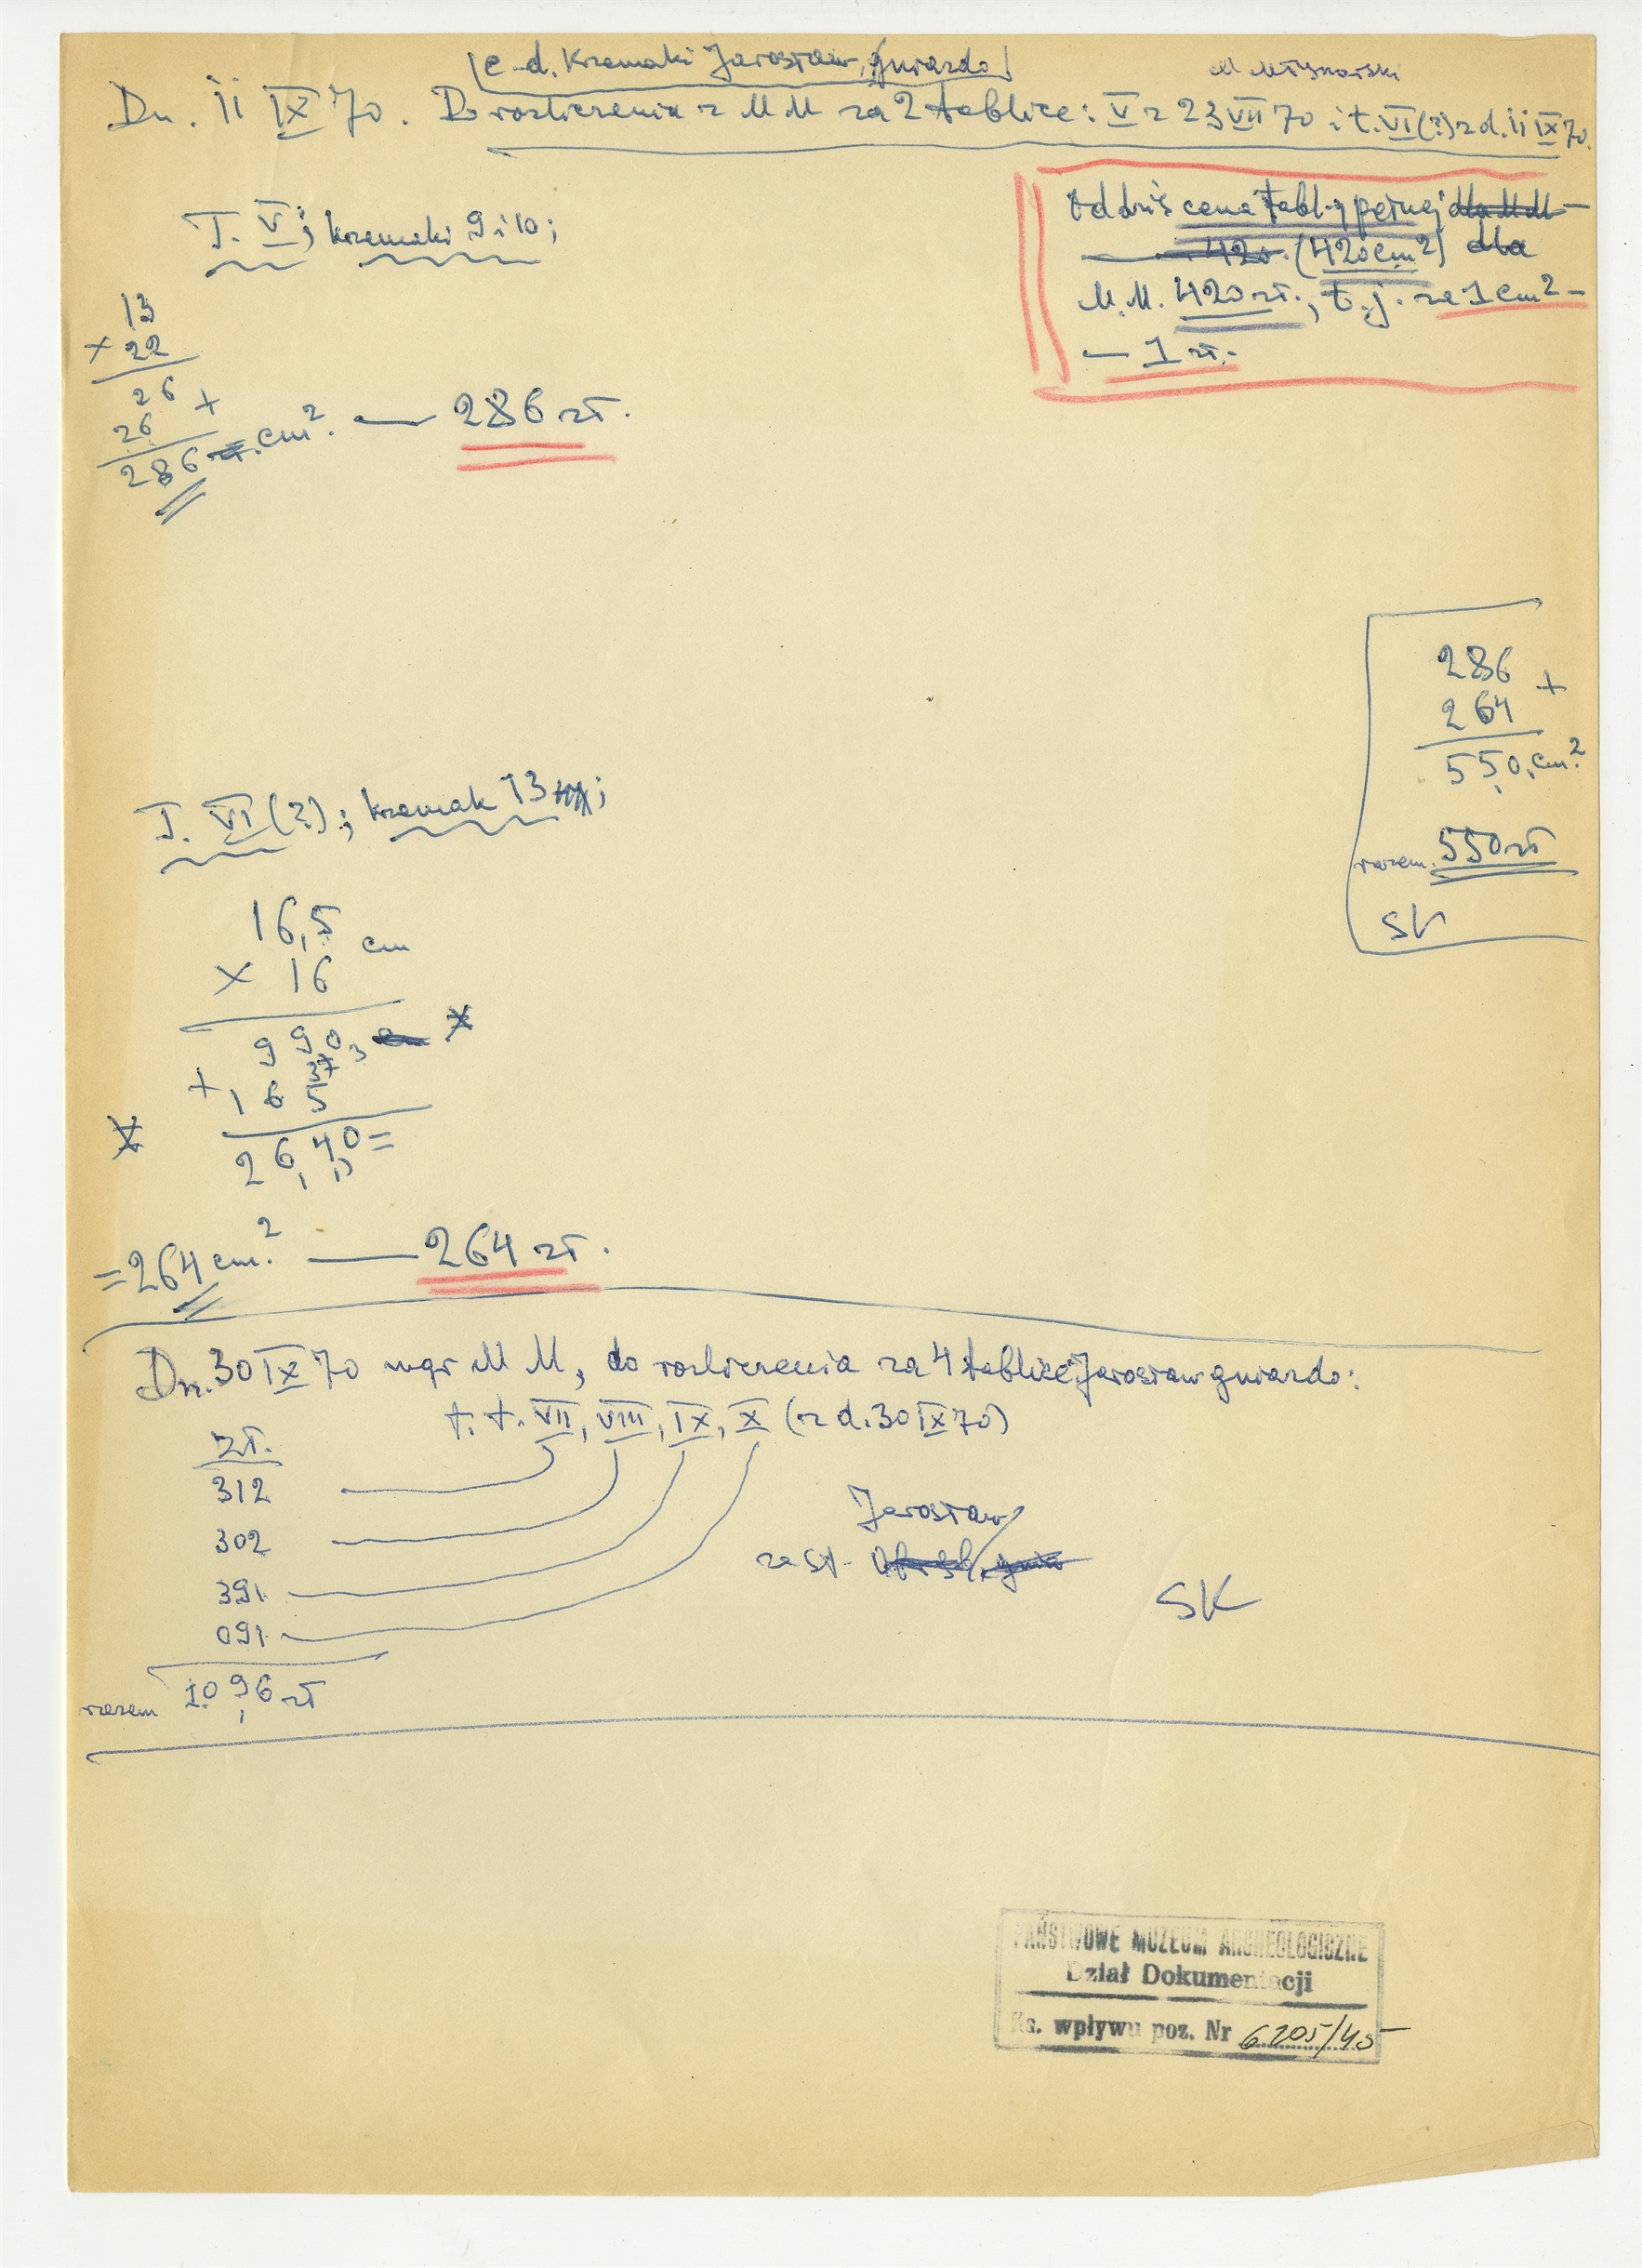 c.d. Krzemaki Jarosław, gniazdo
M Młynarski
Dn. 11 IX 70. Do rozliczenia z M M za 2 tablice: V z 23 VII 70 i t. VI(?) z d. 11 IX 70.
Od dziś cena tabl-y pełnej dla M M -
420. (420 cm²) dla
M. M. 420 zł., t.j. za 1 cm² -
— 1 zł.-
T. V; krzemaki 9 i 10;
13
× 22
26
26 +
286 cm². — 286 zł.
286
264 +
550, cm²
razem 550 zł
SK
T. VI(?); krzemak 13;
16,5 cm
× 16
990
+ 165
26,40 =
= 264 cm². — 264 zł.
Dn. 30 IX 70 mgr M M, do rozliczenia za 4 tablice Jarosław gniazdo:
t. t. VII, VIII, IX, X (z d. 30 IX 70)
zł.
312
302
391.
091.
razem 1096 zł
Jarosław
zast.
SK
PAŃSTWOWE MUZEUM ARCHEOLOGICZNE
Dział Dokumentacji
Ks. wpływu poz. Nr 6205/45